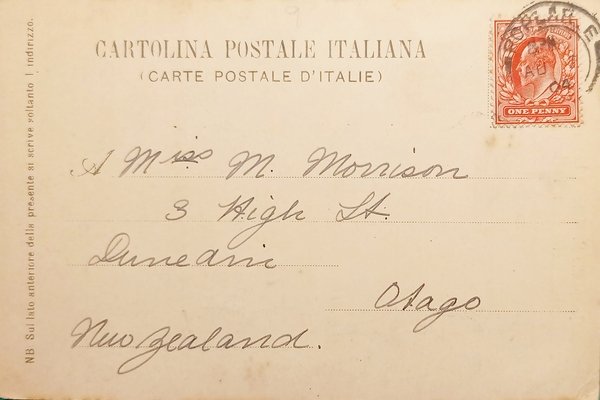 CARTOLINA POSTALE ITALIANA
(CARTE POSTALE D'ITALIE)
NB Sul lato anteriore della presente si scrive soltanto l indirizzo.
POPLAR E
AU
04
ONE PENNY
A Miss M. Morrison
3 High St.
Dunedin
Otago
New Zealand.